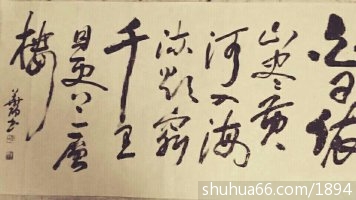 白日依
山尽黄
河入海
流欲窮
千里
目更上一層
樓
shuhua66.com/1894